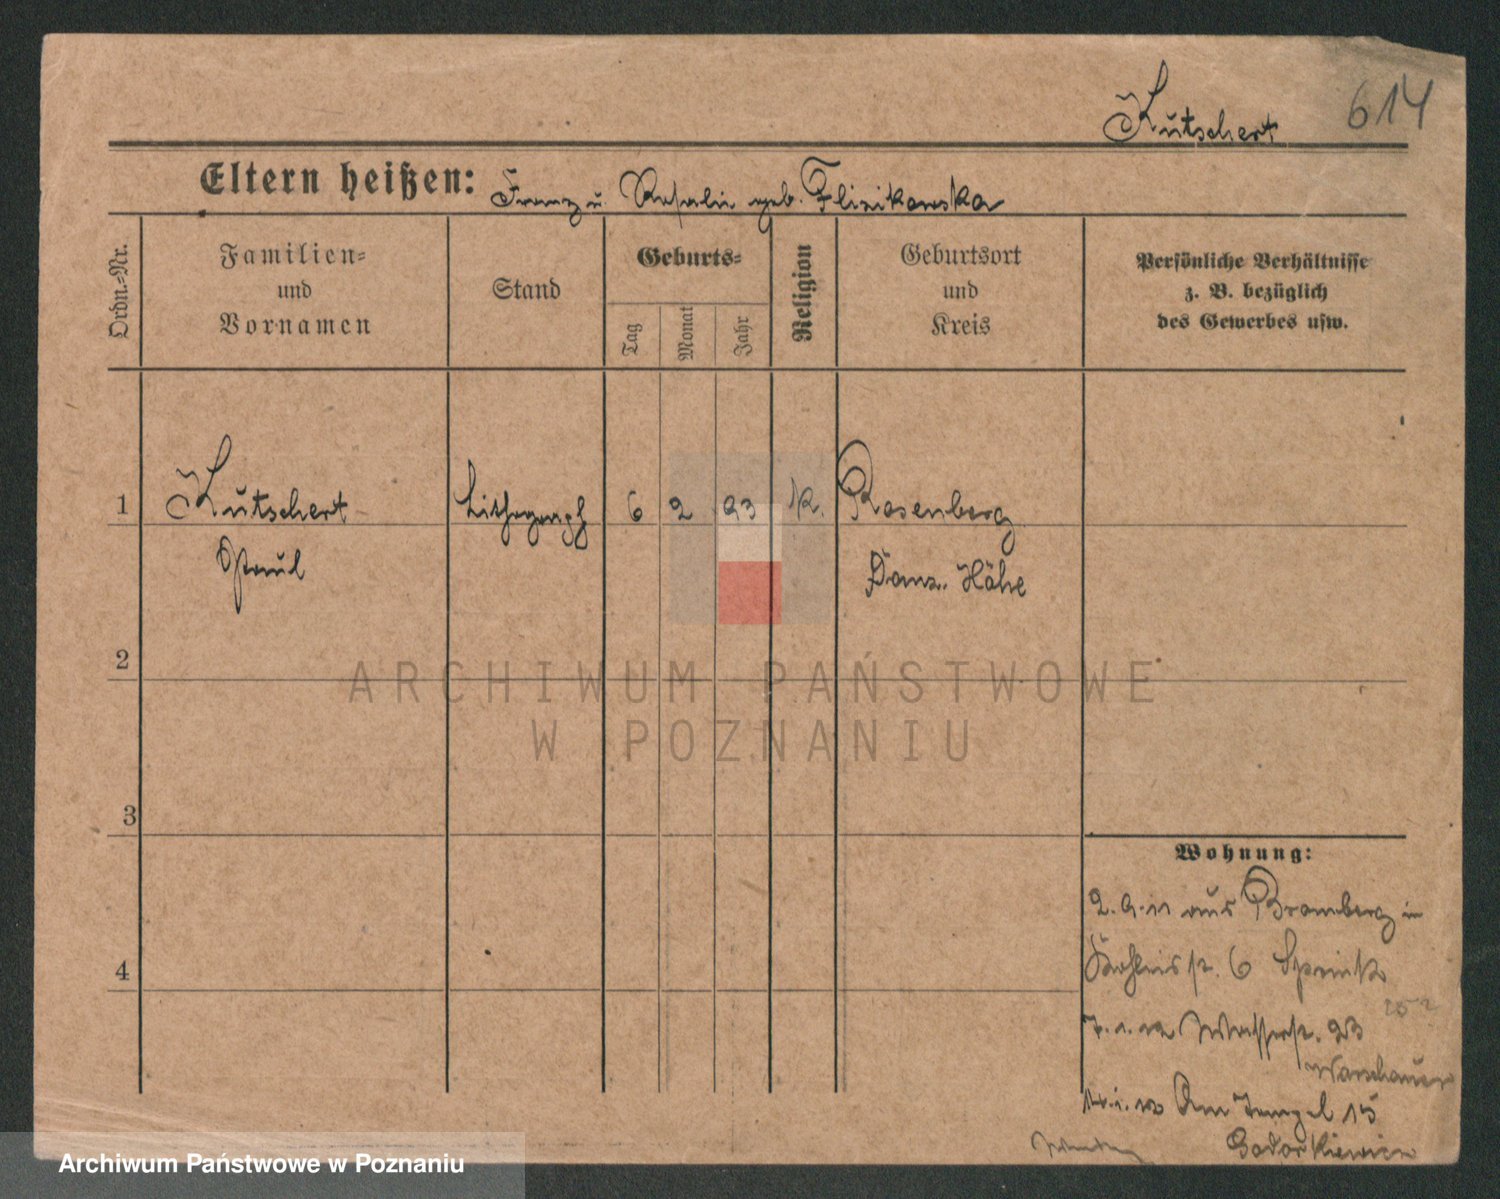 Kutschert 614
Eltern heißen: Franz u. Rosalie geb. Flizikowska
Ordn.-Nr.
Familien-
und
Vornamen
Stand
Geburts-
Tag
Monat
Jahr
Religion
Geburtsort
und
Kreis
Persönliche Verhältnisse
z. B. bezüglich
des Gewerbes usw.
1 Kutschert Lithograph 6 2 93 K. Rosenberg
Paul Danz. Höhe
2
ARCHIWUM PAŃSTWOWE
W POZNANIU
3
Wohnung:
2.9.11 aus Bromberg in
6
4
7.1.12 Wasserstr. 23
Warschauer
Am Tempel 15
Archiwum Państwowe w Poznaniu